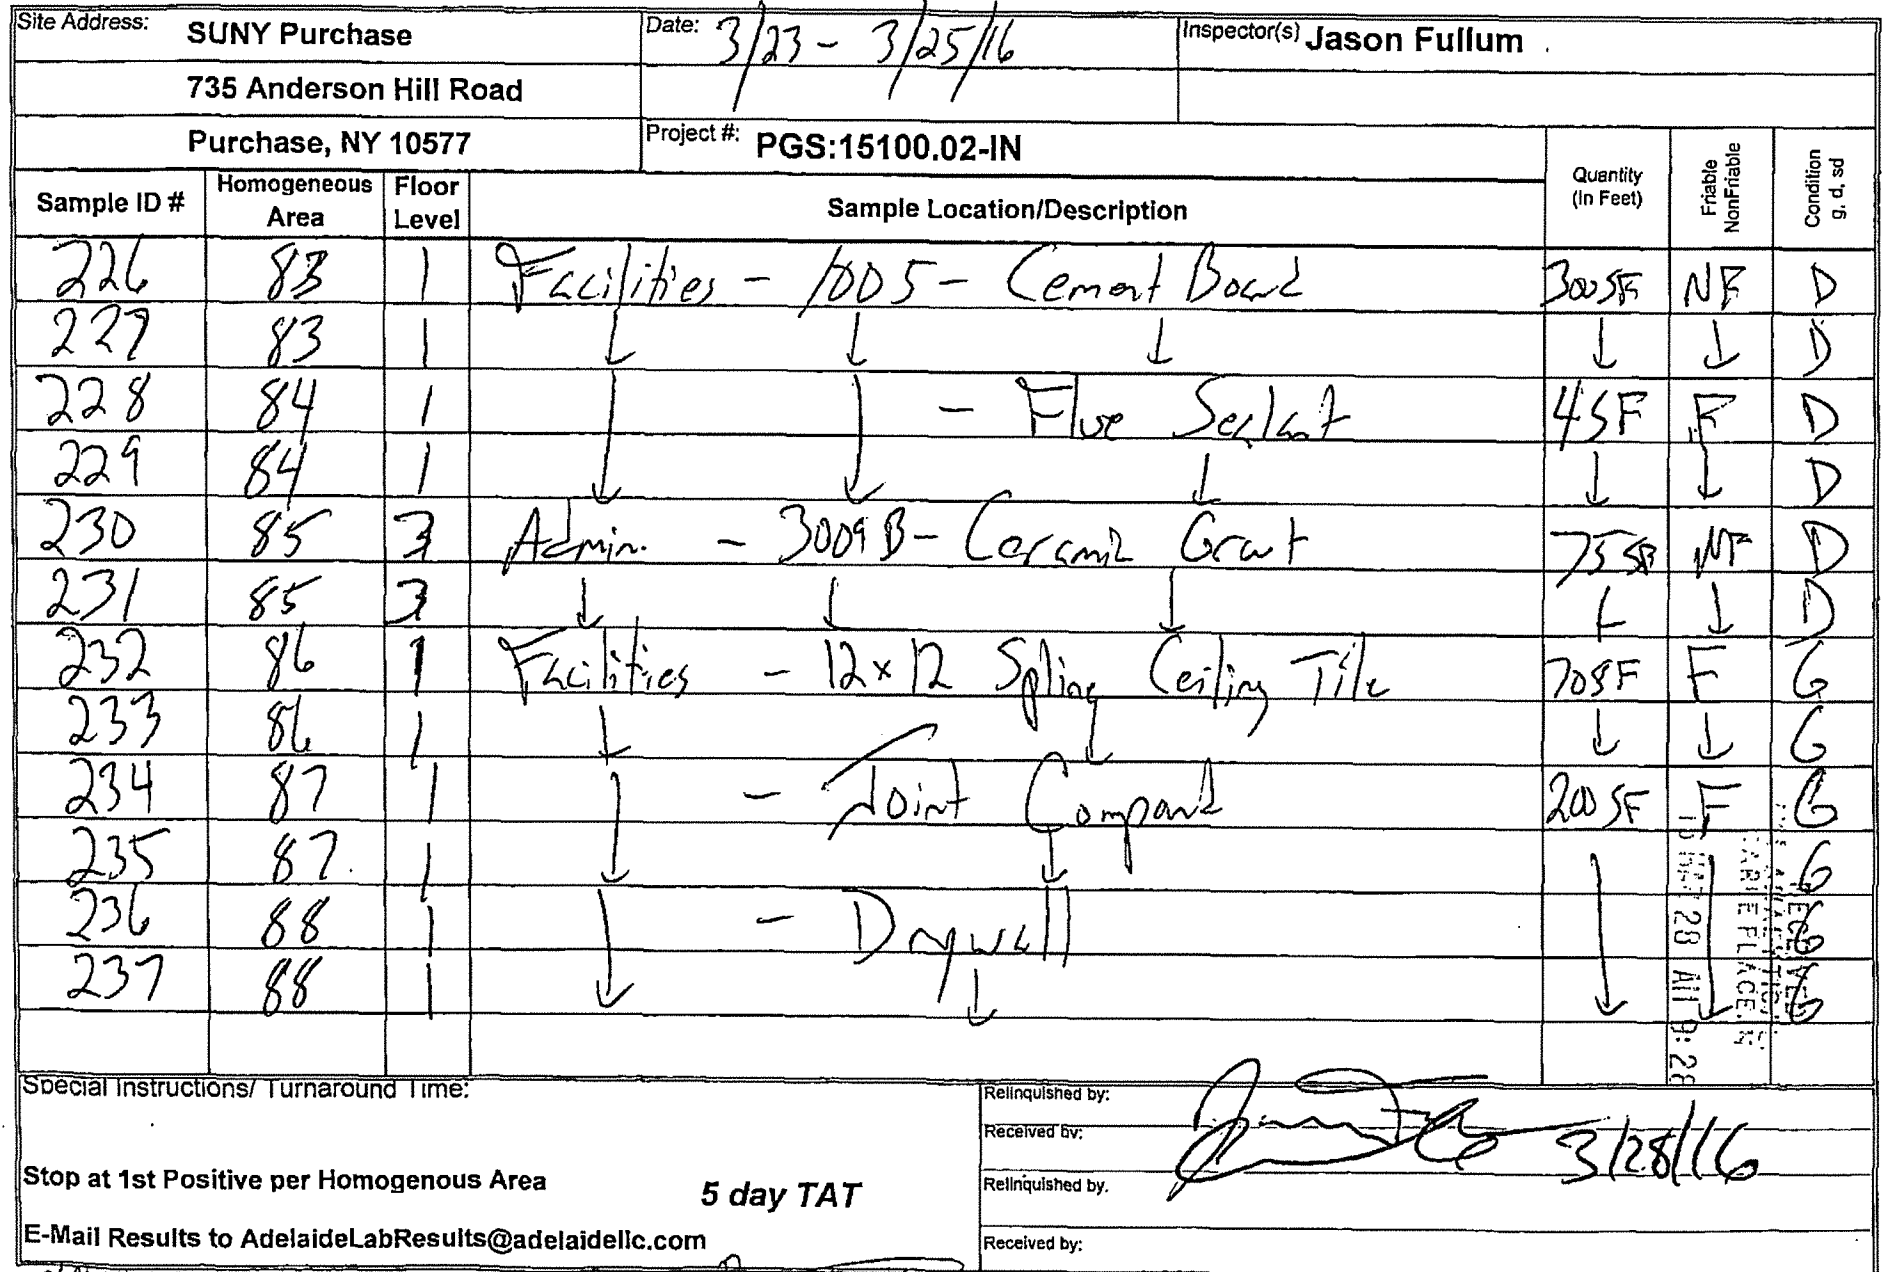 Site Address: SUNY Purchase Date: 3/23 - 3/25/16 Inspector(s) Jason Fullum
735 Anderson Hill Road
Purchase, NY 10577 Project #: PGS:15100.02-IN
Sample ID # Homogeneous Area Floor Level Sample Location/Description Quantity (In Feet) Friable NonFriable Condition g, d, sd
226 83 1 Facilities - 1005 - Cement Board 300SF NF D
227 83 1 ↓ ↓ ↓ ↓ ↓ D
228 84 1 ↓ ↓ - Flue Sealant 4SF F D
229 84 1 ↓ ↓ D
230 85 3 Admin. - 3009B - Ceramic Grout 75SF NF D
231 85 3 ↓ ↓ ↓ ↓ ↓ D
232 86 1 Facilities - 12x12 Spline Ceiling Tile 70SF F G
233 86 1 ↓ ↓ ↓ ↓ G
234 87 1 ↓ - Joint Compound 200SF F G
235 87 1 ↓ ↓ ↓ G
236 88 1 ↓ - Drywall G
237 88 1 ↓ G
Special Instructions/ Turnaround Time:
Stop at 1st Positive per Homogenous Area 5 day TAT
E-Mail Results to AdelaideLabResults@adelaidellc.com
Relinquished by:
Received by: 3/28/16
Relinquished by.
Received by:
RECEIVED
28 9:28